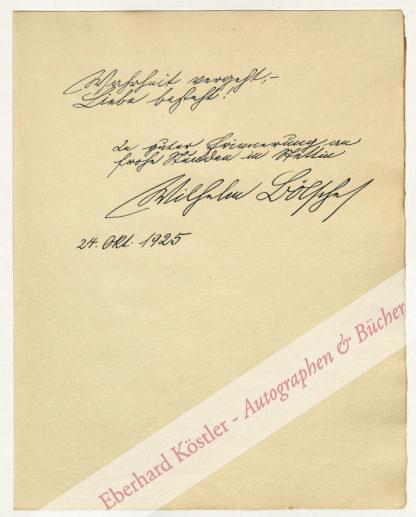 Wahrheit vergeht,-
Liebe besteht!
In guter Erinnerung an
frohe Stunden in Stettin
Wilhelm Bölsche
24. Okt. 1925
Eberhard Köstler - Autographen & Bücher